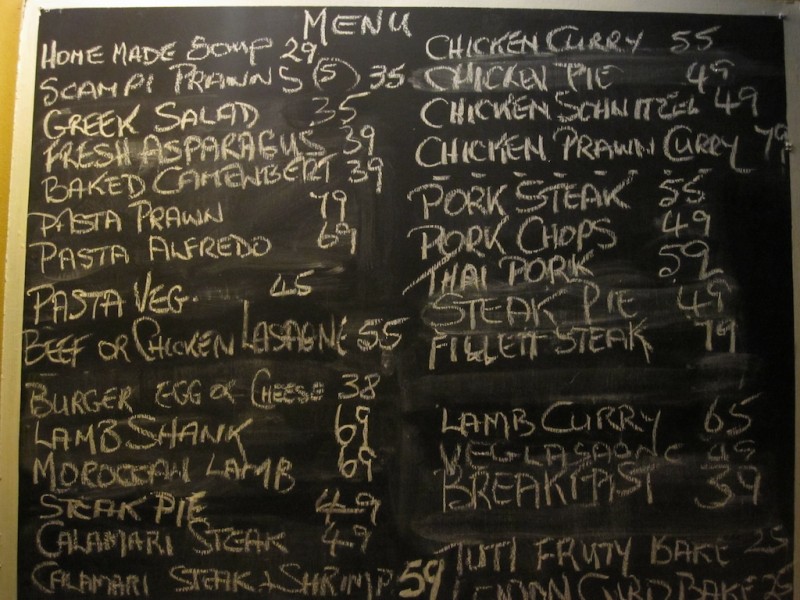 MENU
HOME MADE SOUP 29
SCAMPI PRAWNS (5) 35
GREEK SALAD 35
FRESH ASPARAGUS 39
BAKED CAMENBERT 39
PASTA PRAWN 79
PASTA ALFREDO 69
PASTA VEG. 45
BEEF OR CHICKEN LASAGNE 55
BURGER EGG OR CHEESE 38
LAMB SHANK 69
MOROCCAN LAMB 69
STEAK PIE 49
CALAMARI STEAK 49
CALAMARI STEAK + SHRIMP 59
CHICKEN CURRY 55
CHICKEN PIE 49
CHICKEN SCHNITZEL 49
CHICKEN PRAWN CURRY 79
PORK STEAK 55
PORK CHOPS 49
THAI PORK 59
STEAK PIE 49
FILLETT STEAK 79
LAMB CURRY 65
VEG LASAGNE 45
BREAKFAST 39
TUTI FRUTY BAKE 25
LEMON CURD BAKE 25